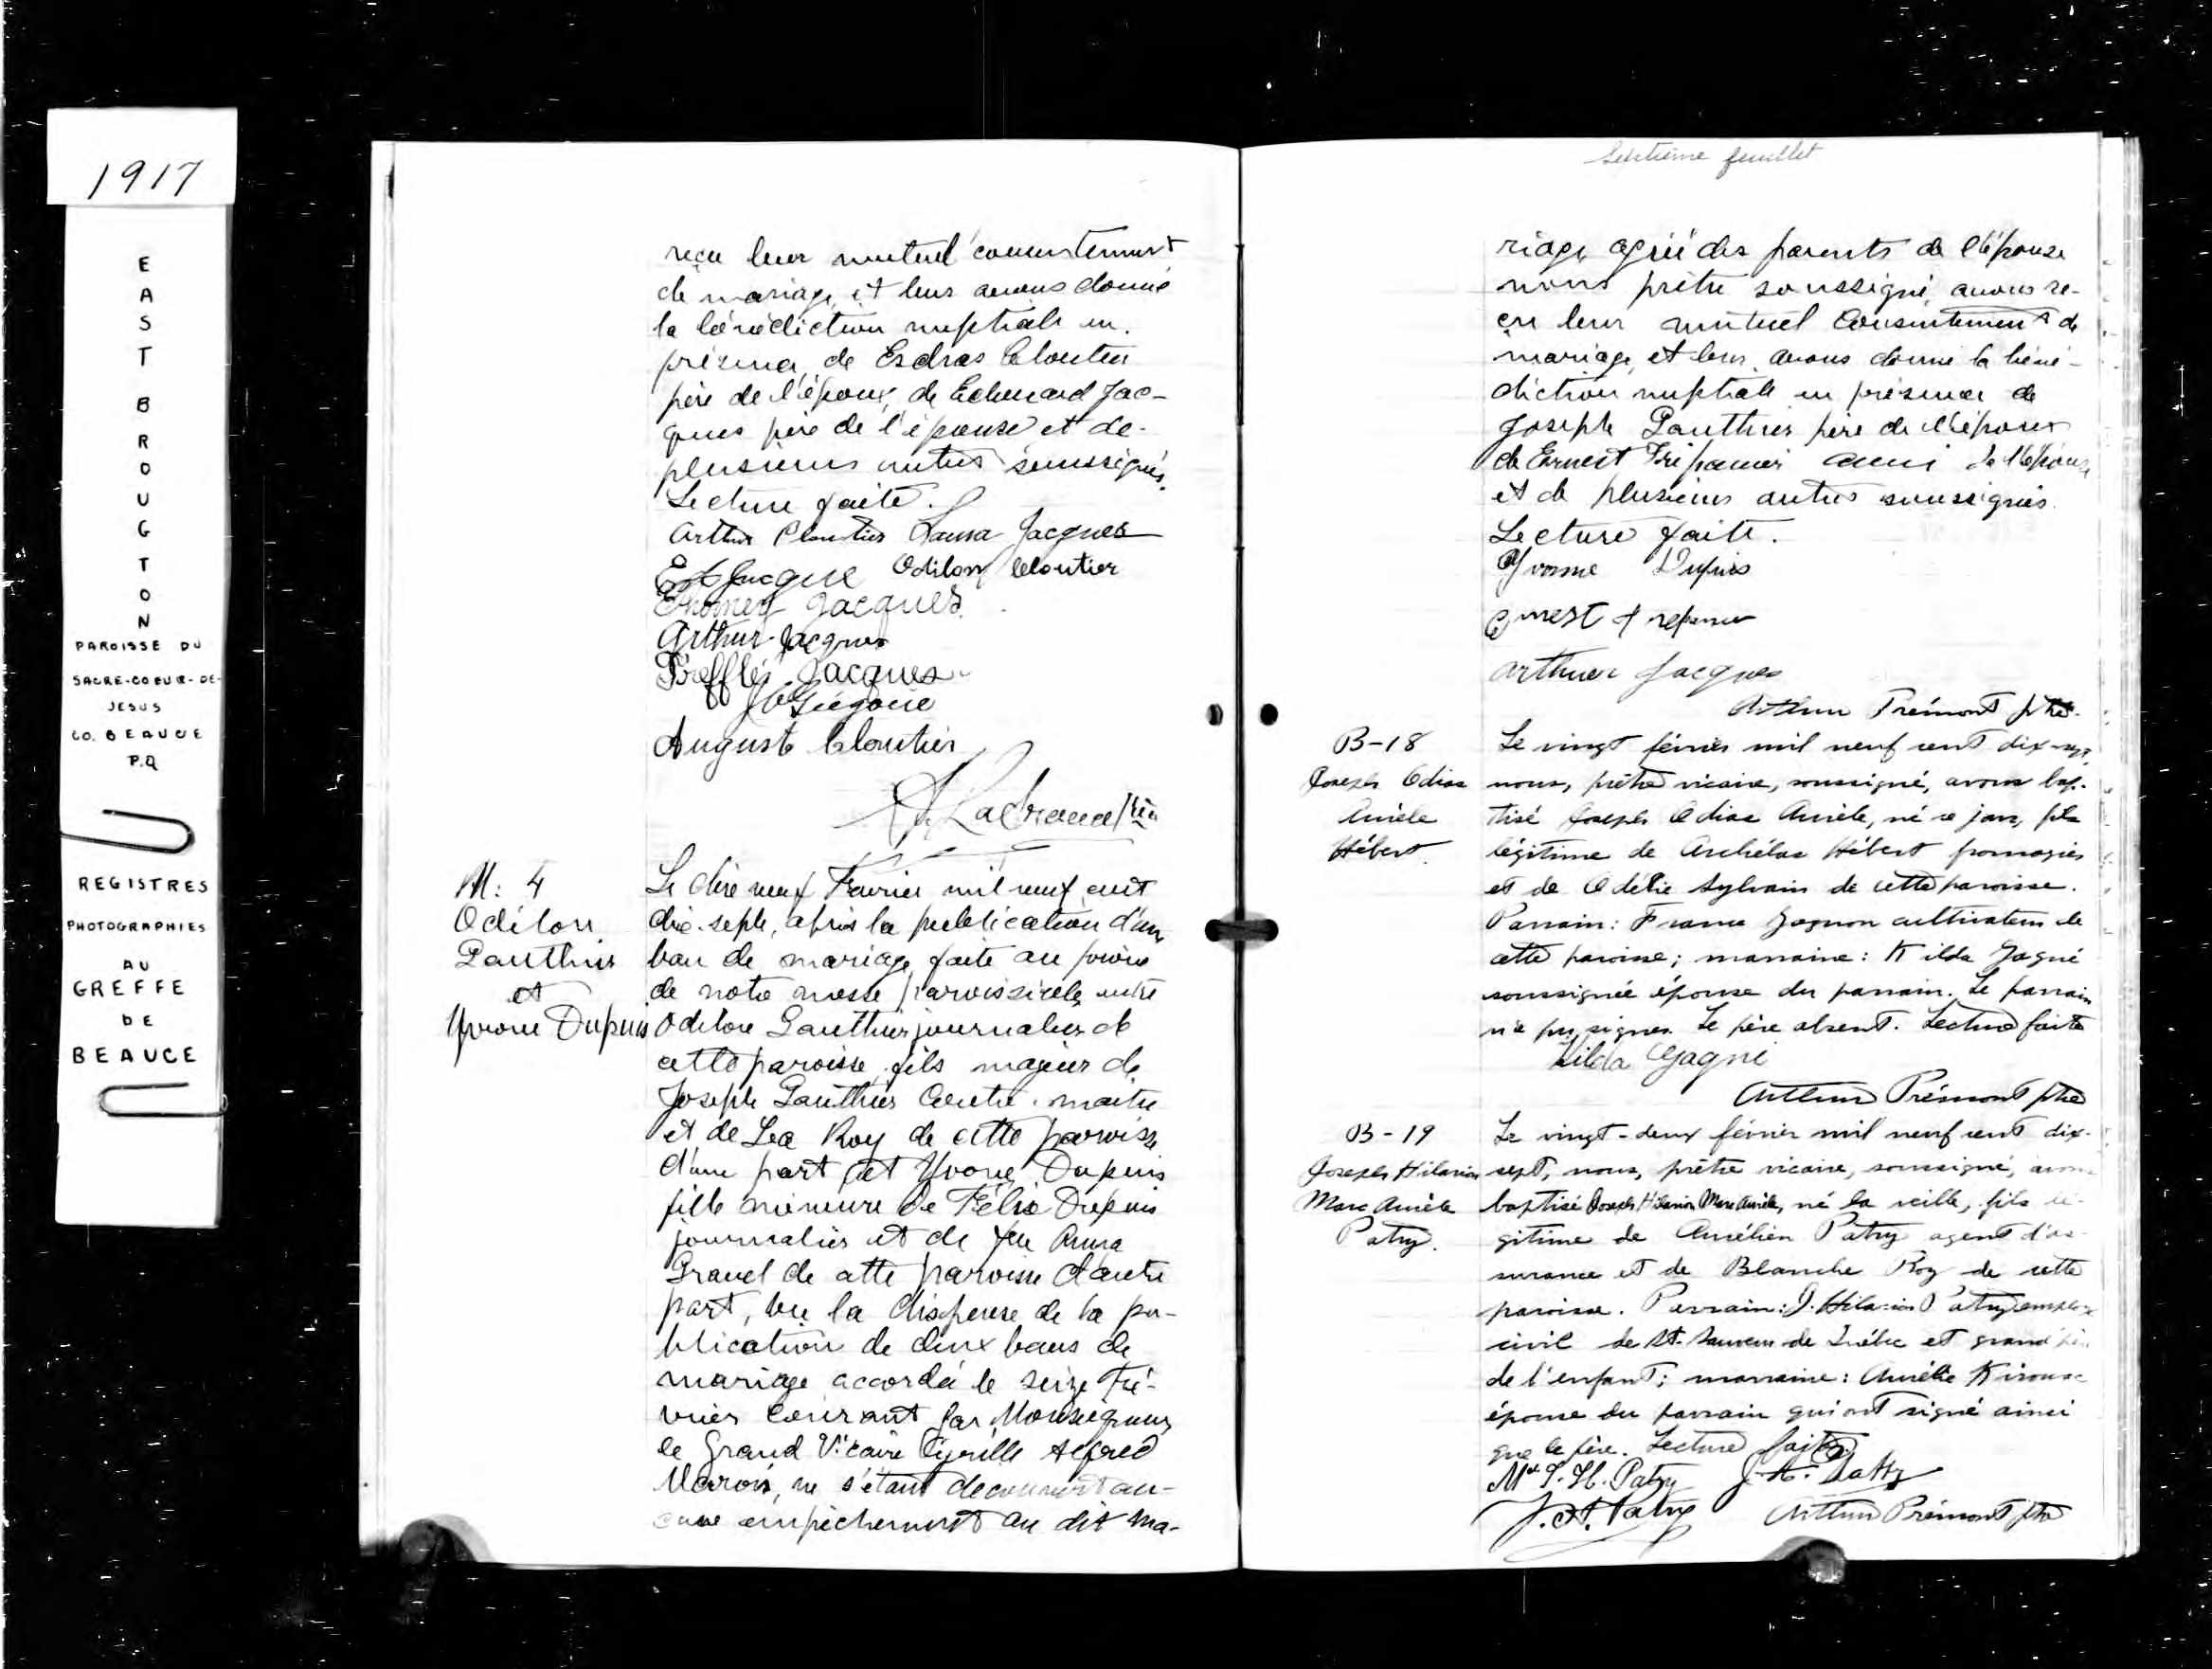 1917
EAST BROUGTON
PAROISSE DU
SACRE-COEUR-DE-
JESUS
CO. BEAUCE
P.Q
REGISTRES
PHOTOGRAPHIES
AU
GREFFE
DE
BEAUCE
reçu leur mutuel consentement
de mariage, et leur avons donné
la bénédiction nuptiale en
présence de Esdras Cloutier
père de l'époux, de Edouard Jac-
ques père de l'épouse et de
plusieurs autres soussignés.
Lecture faite.
Arthur Cloutier Laura Jacques
Ed Jacque Odilon Cloutier
Jacques
Arthur Jacques
Trefflé Jacques
Grégoire
Auguste Cloutier
M: 4
Odilon
Gauthier
et
Yvone Dupuis
Le dix neuf Fevrier mil neuf cent
dix-sept, après la publication d'un
ban de mariage, faite au prône
de notre messe paroissiale, entre
Odilon Gauthier journalier de
cette paroisse, fils majeur de
Joseph Gauthier Contre-maitre
et de Lea Roy de cette paroisse
d'une part, et Yvone Dupuis
fille mineure de Félix Dupuis
journalier et de feu Anna
Gravel de cette paroisse d'autre
part, vu la dispense de la pu-
blication de deux bans de
mariage accordée le seize Fé-
vrier courant par Monseigneur
le Grand Vicaire Cyrille Alfred
Marois, ne s'étant découvert au-
cune empêchement au dit ma-
Septième feuillet
riage, agréé des parents de l'épouse
nous prêtre soussigné, avons re-
çu leur mutuel consentement de
mariage, et leur avons donné la béné-
diction nuptiale en présence de
Joseph Gauthier père de l'époux
de Ernest Trépanier ami de l'épouse
et de plusieurs autres soussignés.
Lecture faite.
Yvonne Dupuis
Ernest Trepanier
Arthur Jacques
Arthur Prémont ptre.
B-18
Joseph Odias
Aurèle
Hébert.
Le vingt février mil neuf cent dix-sept
nous, prêtre vicaire, soussigné, avons bap-
tisé Joseph Odias Aurèle, né ce jour, fils
légitime de Archélas Hébert fromagier
et de Odélie Sylvain de cette paroisse.
Parrain: Gagnon cultivateur de
cette paroisse; marraine: Kilda Gagné
soussignée épouse du parrain. Le parrain
n'a pu signer. Le père absent. Lecture faite
Kilda Gagné
Arthur Prémont ptre
B-19
Joseph Hilarion
Marc Aurèle
Patry.
Le vingt-deux février mil neuf cent dix-
sept, nous, prêtre vicaire, soussigné, avons
baptisé Joseph Hilarion Marc Aurèle, né la veille, fils lé-
gitime de Aurélien Patry agent d'as-
surance et de Blanche Roy de cette
paroisse. Parrain: J. Hilarion Patry employé
civil de St. Sauveur de Québec et grand père
de l'enfant; marraine: Aurélie Kirouac
épouse du parrain qui ont signé ainsi
que le père. Lecture faite
Me J. H. Patry J. H. Patry
J. A. Patry Arthur Prémont ptre